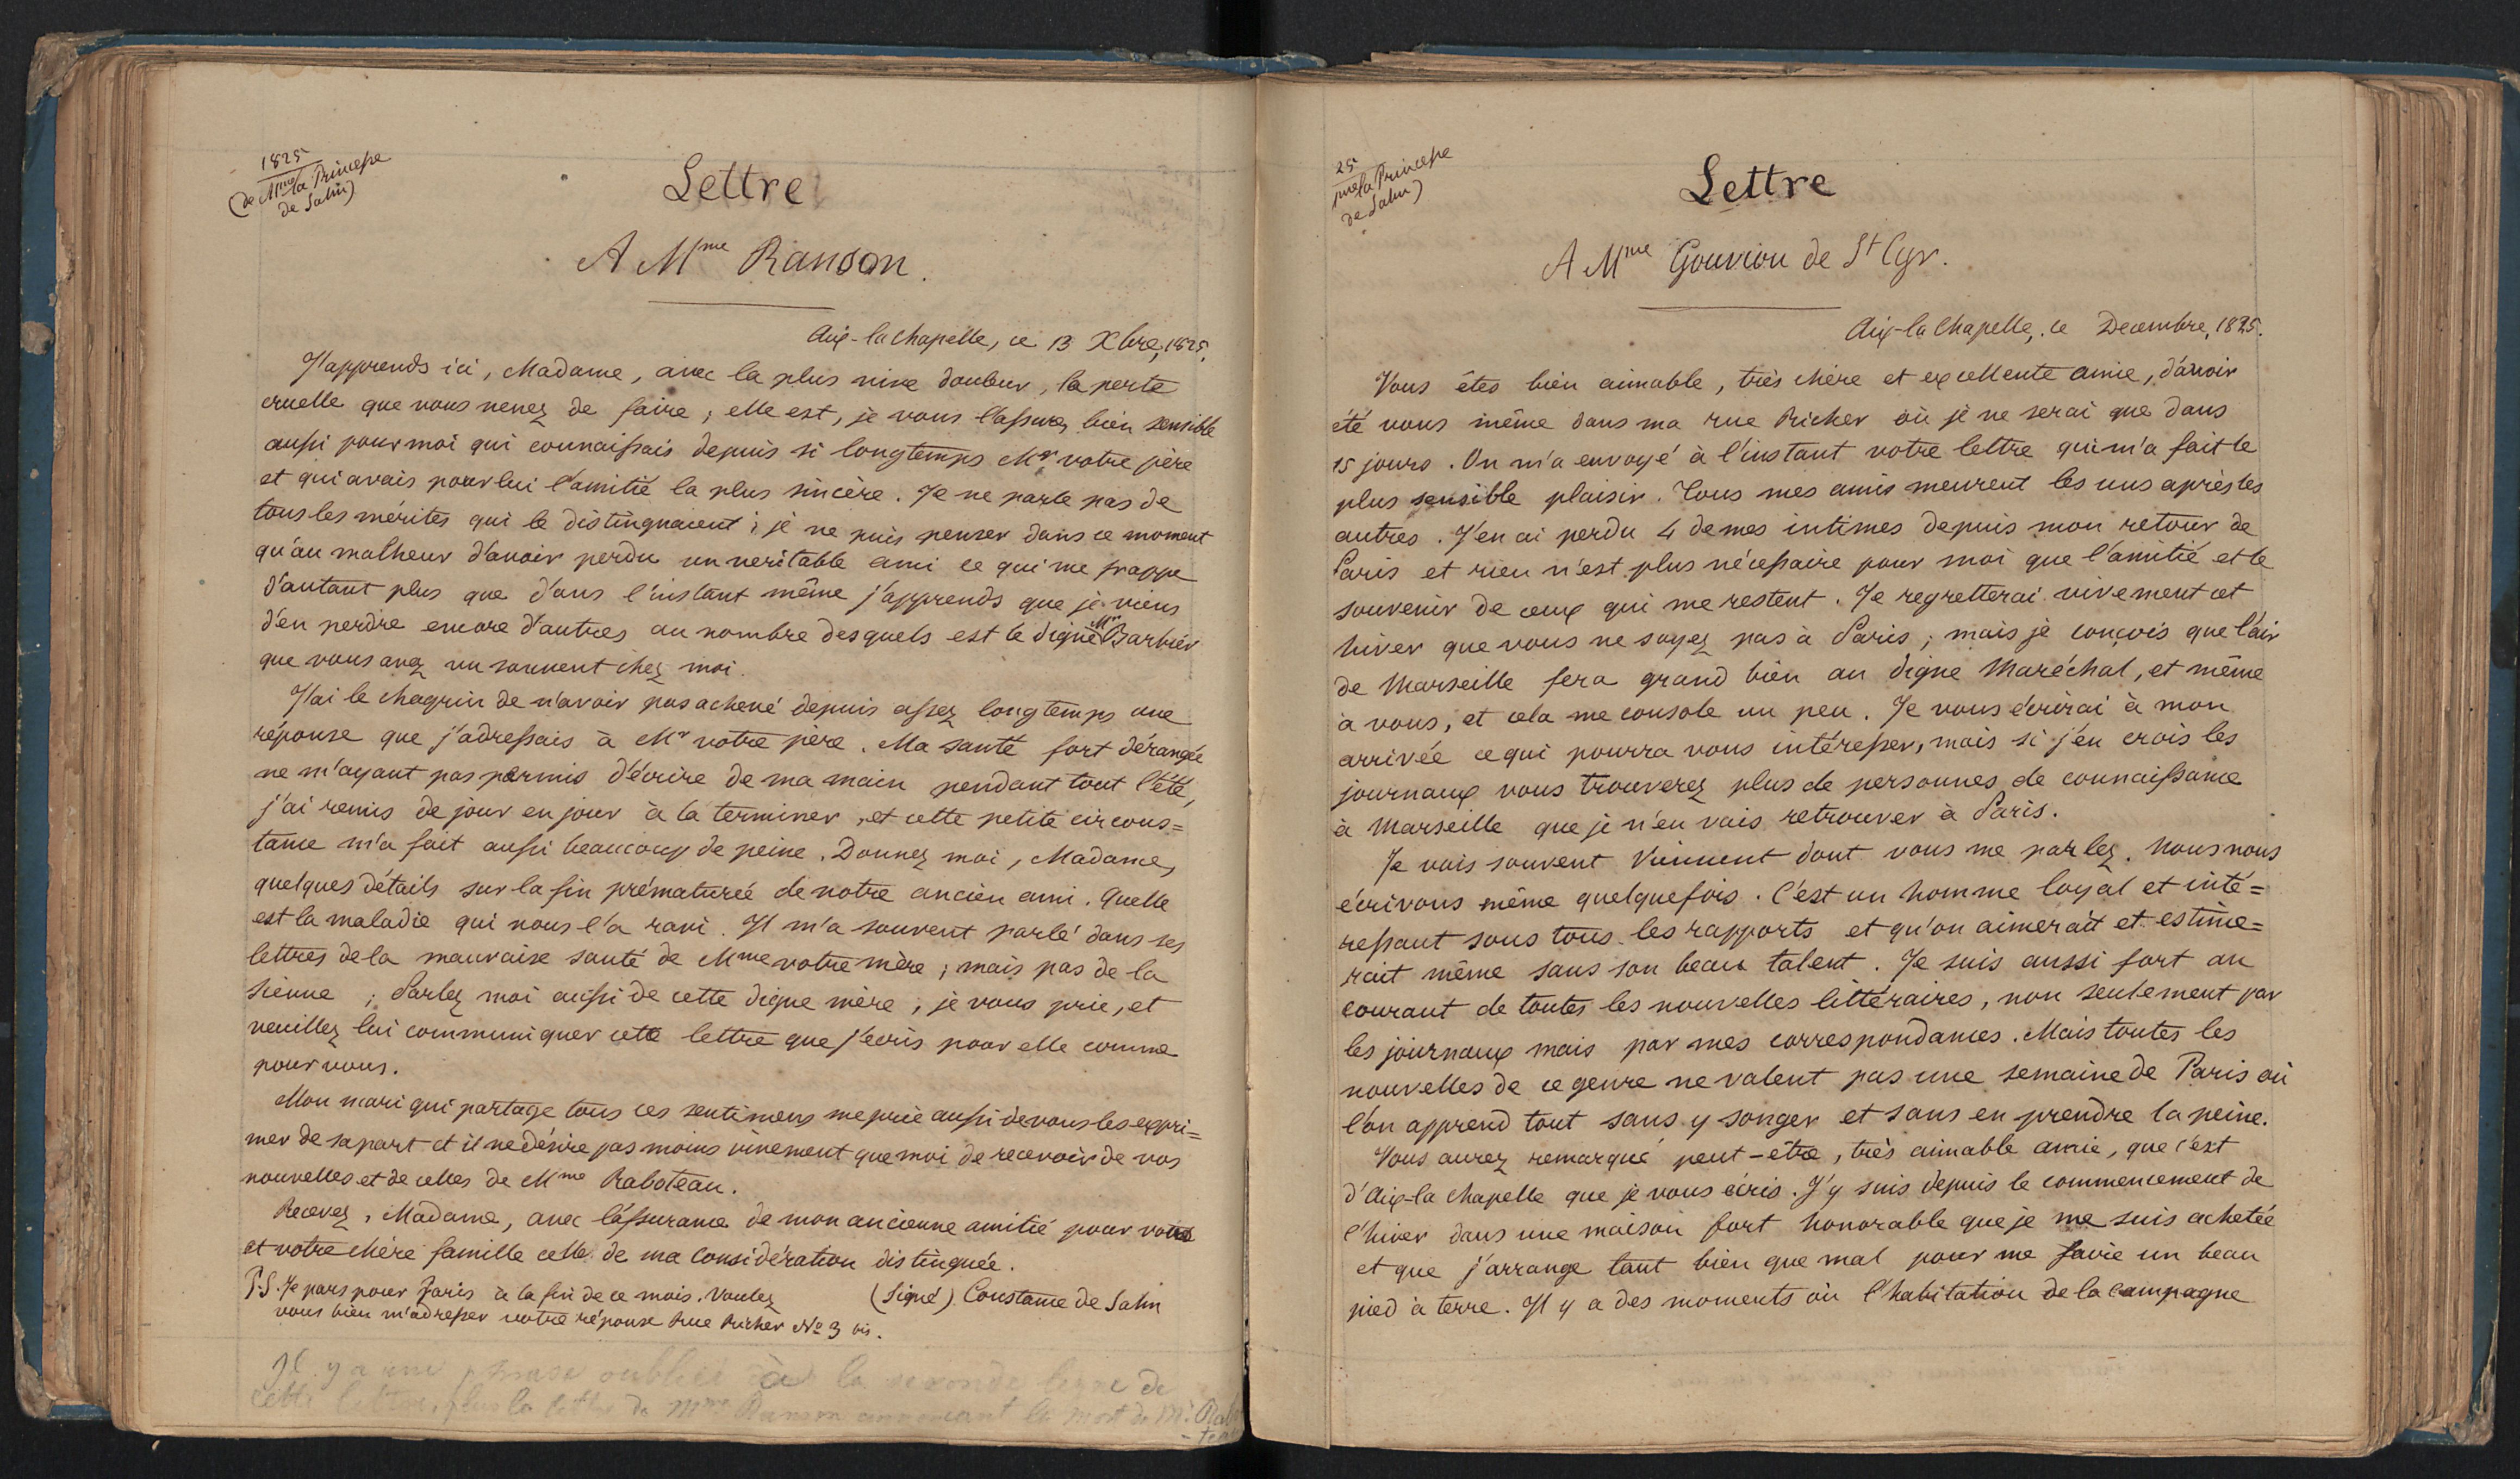 1825
(de Mme la Princesse
de Salm)
Lettre
A Mme Ranson.
Aix-la Chapelle, ce 13 Xbre, 1825.
J'apprends ici, Madame, avec la plus vive douleur, la perte
cruelle que vous venez de faire; elle est, je vous l'assure, bien sensible
aussi pour moi qui connaissais depuis si longtemps Mr votre père
et qui avais pour lui l'amitié la plus sincère. Je ne parle pas de
tous les mérites qui le distinguaient; je ne puis penser dans ce moment
qu'au malheur d'avoir perdu un veritable ami ce qui me frappe
d'autant plus que dans l'instant même j'apprends que je viens
d'en perdre encore d'autres au nombre desquels est le digne Mr Barbier
que vous avez vu souvent chez moi.
J'ai le chagrin de n'avoir pas achevé depuis assez longtemps une
réponse que j'adressais à Mr votre père. Ma santé fort dérangée
ne m'ayant pas permis d'écrire de ma main pendant tout l'été,
j'ai remis de jour en jour à la terminer, et cette petite circons=
tance m'a fait aussi beaucoup de peine. Donnez moi, Madame,
quelques détails sur la fin prématurée de notre ancien ami. Quelle
est la maladie qui nous l'a ravi. Il m'a souvent parlé dans ses
lettres de la mauvaise santé de Mme votre mère; mais pas de la
sienne; Parlez moi aussi de cette digne mère, je vous prie, et
veuillez lui communiquer cette lettre que j'écris pour elle comme
pour vous.
Mon mari qui partage tous ces sentimens me prie aussi de vous les expri=
mer de sa part et il ne désire pas moins vivement que moi de recevoir de vos
nouvelles et de celles de Mme Raboteau.
Recevez, Madame, avec l'assurance de mon ancienne amitié pour vous
et votre chère famille celle de ma considération distinguée.
P.S. Je pars pour Paris à la fin de ce mois. Voulez
vous bien m'adresser votre réponse Rue Richer No 3 bis.
(Signé) Constance de Salm
Il y a une phrase oubliée à la seconde ligne de
cette lettre, plus la lettre de Mme Ranson annonçant la mort de Mr Rabo
-teau
25
me la Princesse
de Salm)
Lettre
A Mme Gouvion de St Cyr.
Aix-la Chapelle, ce Decembre, 1825.
Vous êtes bien aimable, très chère et excellente amie, d'avoir
été vous même dans ma rue Richer où je ne serai que dans
15 jours. On m'a envoyé à l'instant votre lettre qui m'a fait le
plus sensible plaisir. Tous mes amis meurent les uns après les
autres. J'en ai perdu 4 de mes intimes depuis mon retour de
Paris et rien n'est plus nécessaire pour moi que l'amitié et le
souvenir de ceux qui me restent. Je regretterai vivement cet
hiver que vous ne soyez pas à Paris; mais je conçois que l'air
de Marseille fera grand bien au digne Maréchal, et même
à vous, et cela me console un peu. Je vous écrirai à mon
arrivée ce qui pourra vous intéresser, mais si j'en crois les
journaux vous trouverez plus de personnes de connaissance
à Marseille que je n'en vais retrouver à Paris.
Je vois souvent Viennent dont vous me parlez. Nous nous
écrivons même quelquefois. C'est un homme loyal et inté=
ressant sous tous les rapports et qu'on aimerait et estime=
rait même sans son beau talent. Je suis aussi fort au
courant de toutes les nouvelles littéraires, non seulement par
les journaux mais par mes correspondances. Mais toutes les
nouvelles de ce genre ne valent pas une semaine de Paris où
l'on apprend tout sans y songer et sans en prendre la peine.
Vous aurez remarqué peut-être, très aimable amie, que c'est
d'Aix-la Chapelle que je vous écris. J'y suis depuis le commencement de
l'hiver dans une maison fort honorable que je me suis achetée
et que j'arrange tant bien que mal pour me faire un beau
pied à terre. Il y a des moments où l'habitation de la campagne